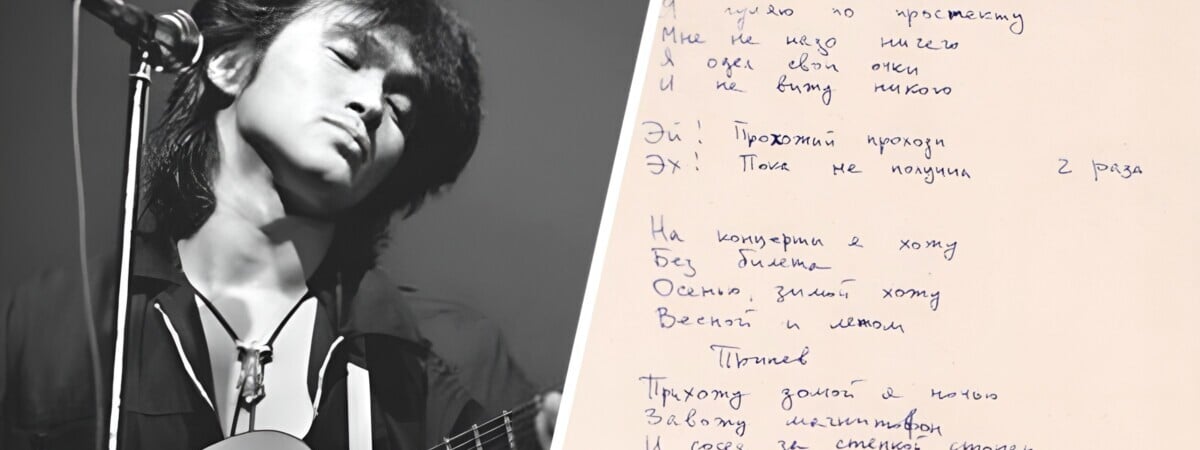 Я гуляю по проспекту
Мне не надо ничего
Я одел свои очки
И не вижу никого
Эй! Прохожий проходи
Эх! Пока не получил 2 раза
На концерты я хожу
Без билета
Осенью, зимой хожу
Весной и летом
Припев
Прихожу домой я ночью
Завожу магнитофон
И сосед за стенкой